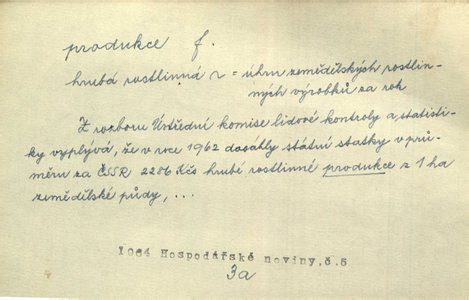 produkce f.
hrubá rostlinná ~ = úhrn zemědělských rostlin-
ných výrobků za rok
Z rozboru Ústřední komise lidové kontroly a statisti-
ky vyplývá, že v roce 1962 dosáhly státní statky v prů-
měru za ČSSR 2286 Kčs hrubé rostlinné produkce z 1 ha
zemědělské půdy, ...
1964 Hospodářské noviny.č.5
3a